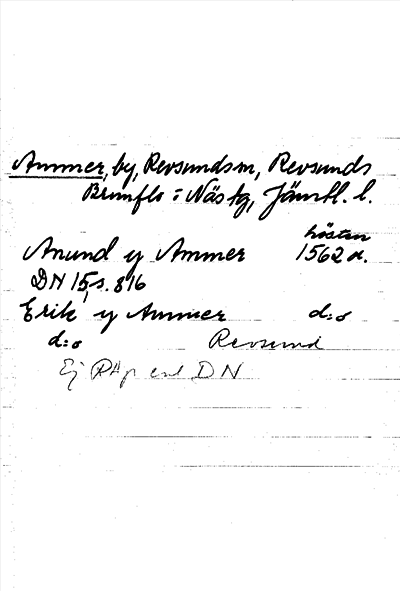 Ammer, by, Revsundsn, Revsunds
Brunflo o Näs tg, Jämtl. l.
hösten
Anund y Ammer 1562 or.
DN 15, s. 816
Erik y Ammer d:o
d:o Revsund
Ej RAp enl DN